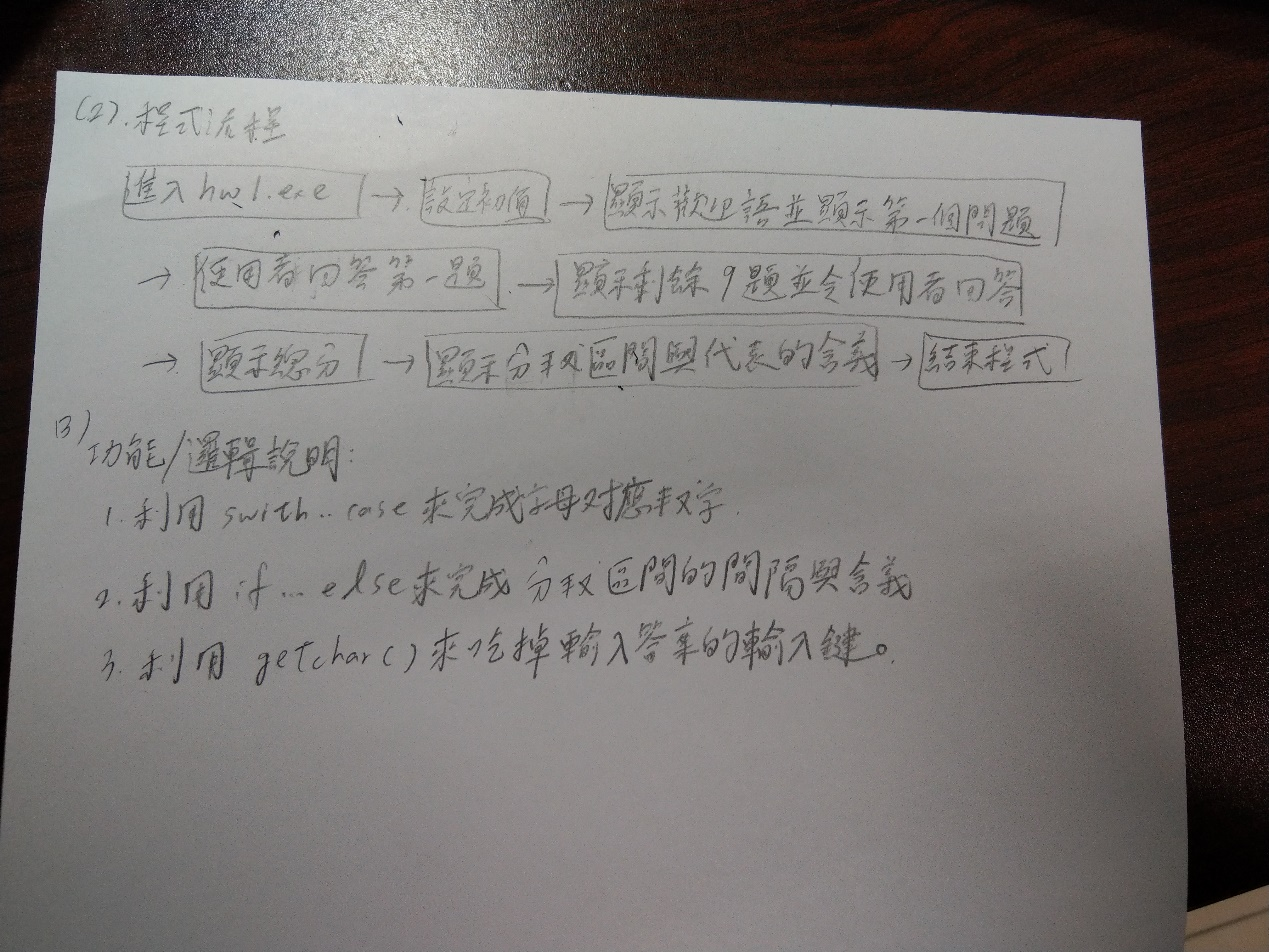 (2). 程式流程
進入hw1.exe → 設定初值 → 顯示歡迎語並顯示第一個問題
→ 使用者回答第一題 → 顯示剩餘9題並令使用者回答
→ 顯示總分 → 顯示分数區間與代表的含義 → 結束程式
(3)
功能/邏輯說明:
1. 利用 swith..case 來完成字母对應数字.
2. 利用 if... else來完成 分数 區間的間隔與含義
3. 利用 getchar() 來吃掉輸入答案的輸入鍵。